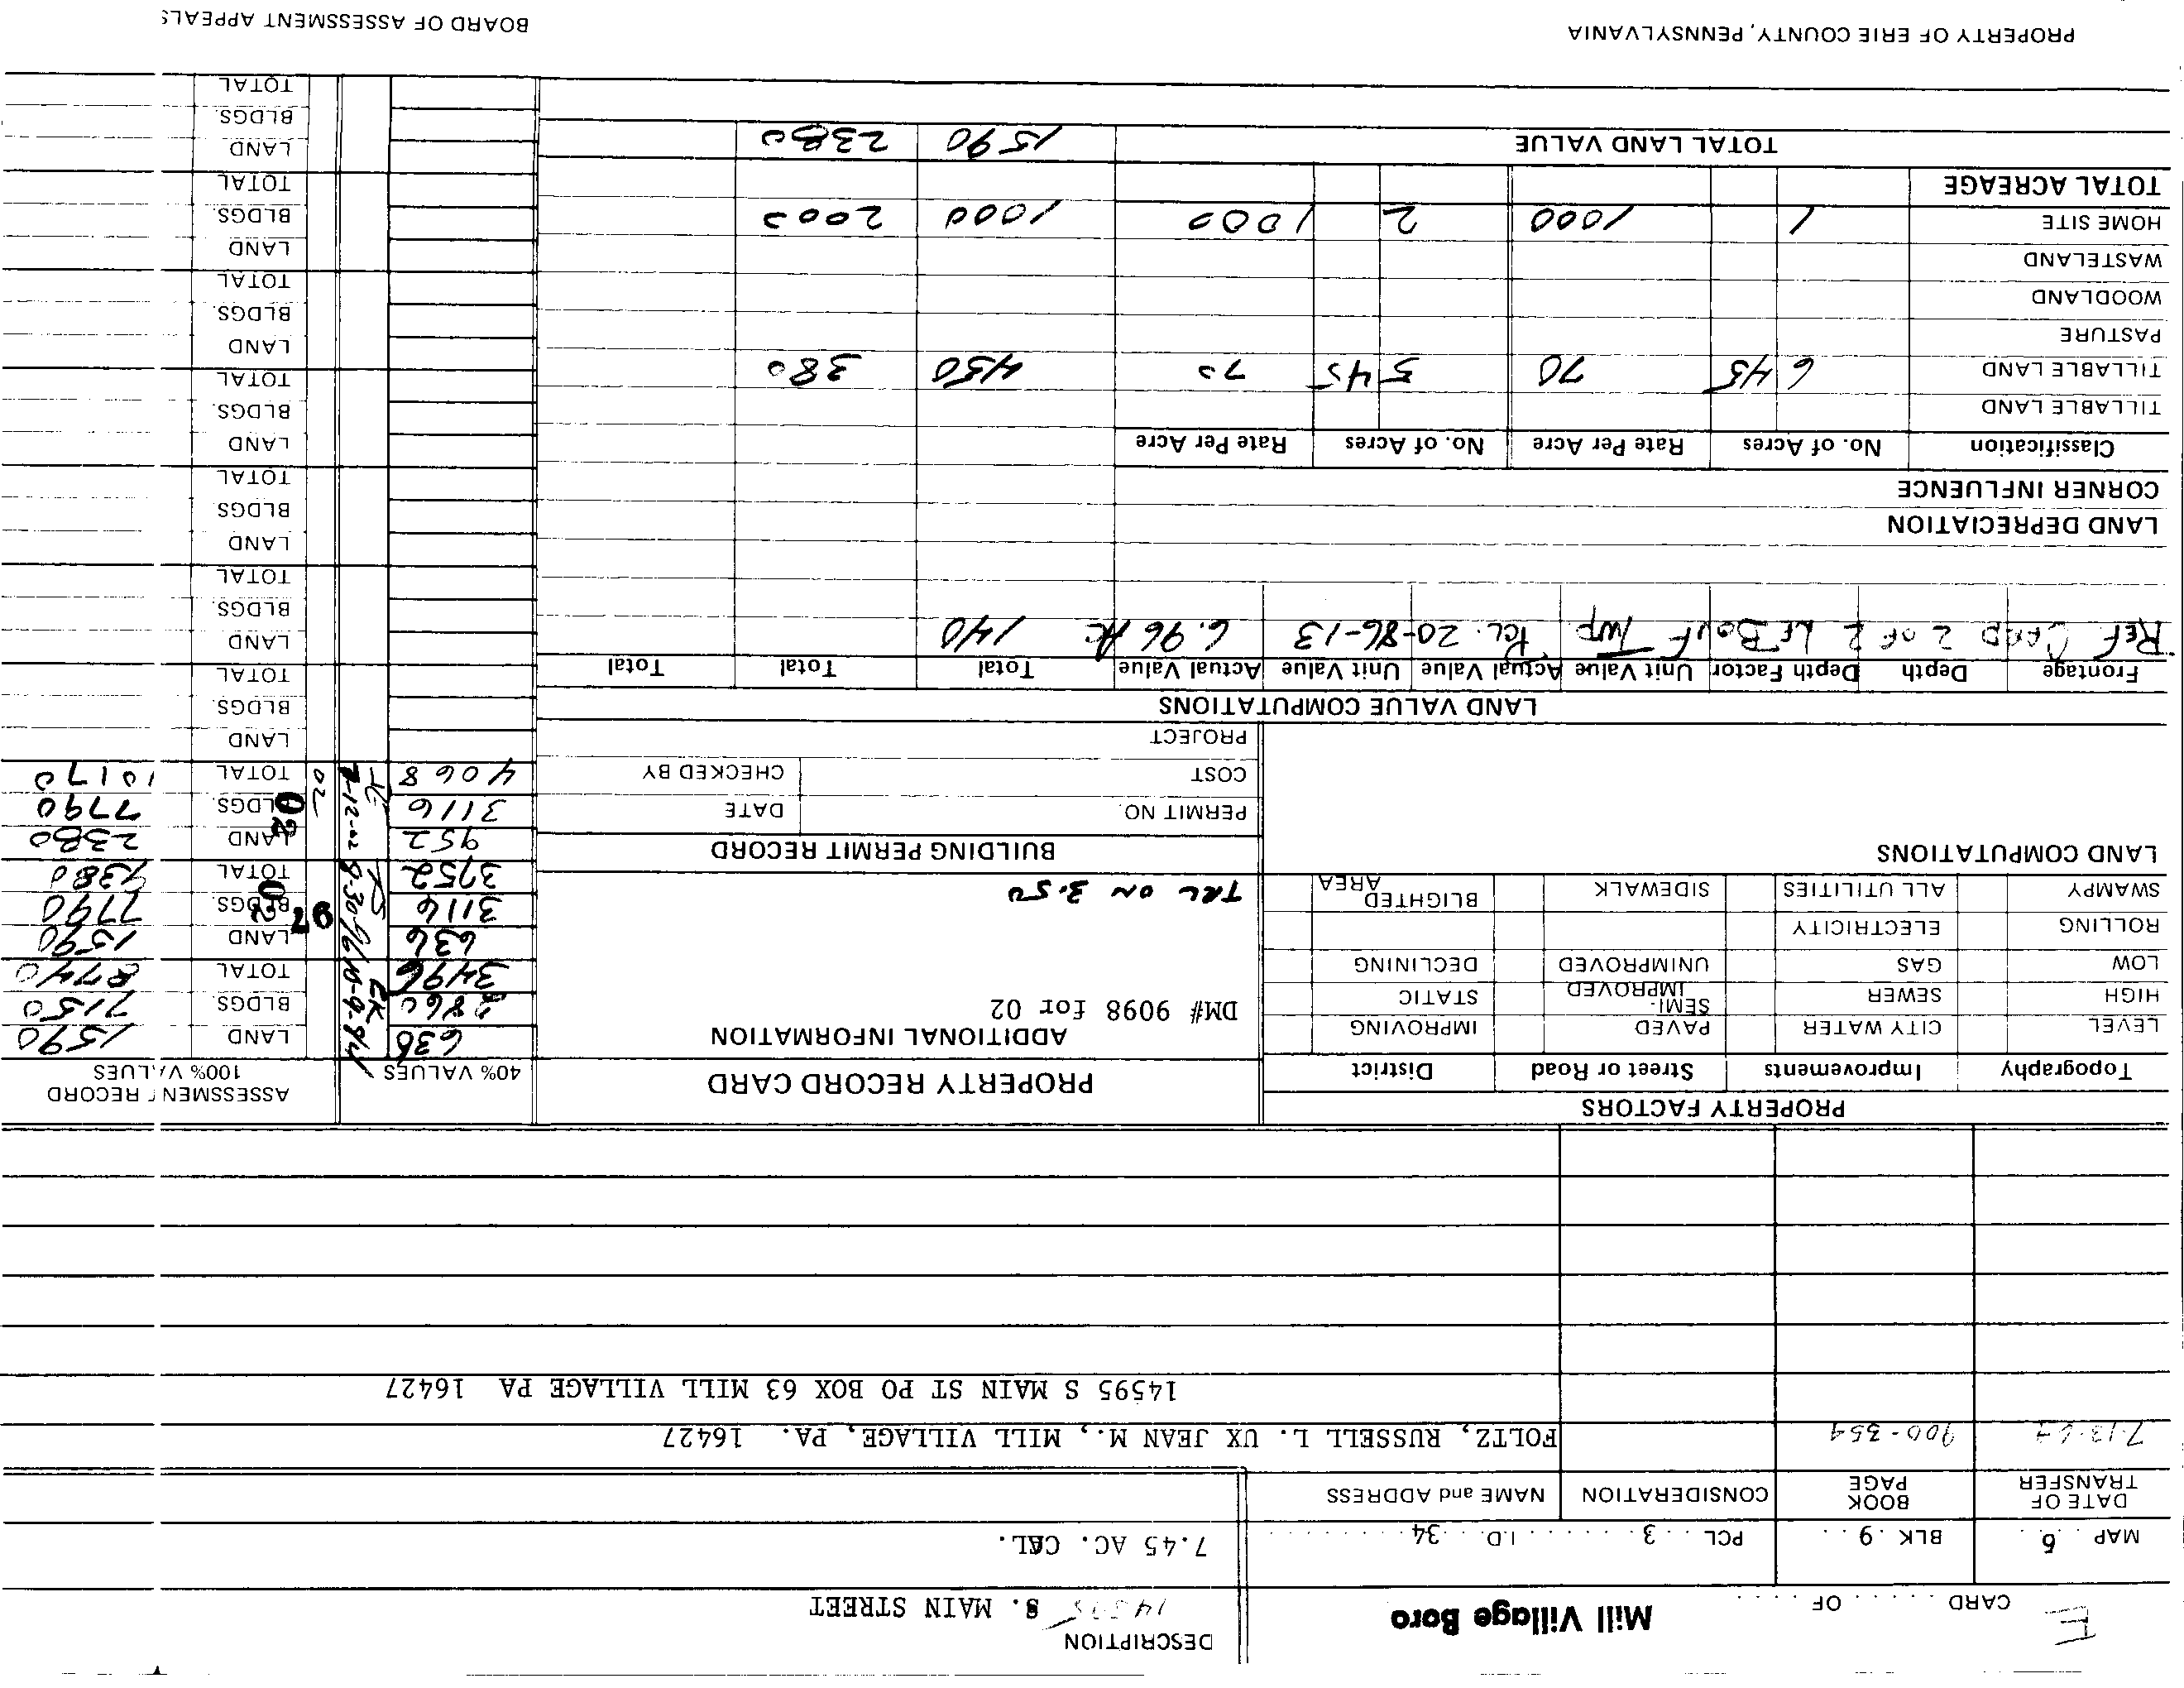 DESCRIPTION
Mill Village Boro
CARD . . . . . . OF . . . . .
S. MAIN STREET
MAP . . 6 . . BLK . 9 . . PCL . . . 3 . . . . . . . I.D. . . 34 . . . . . . . . .
7.45 AC. CAL.
DATE OF TRANSFER BOOK PAGE CONSIDERATION NAME and ADDRESS
900-359 FOLTZ, RUSSELL L. UX JEAN M., MILL VILLAGE, PA. 16427
14595 S MAIN ST PO BOX 63 MILL VILLAGE PA 16427
PROPERTY FACTORS
Topography Improvements Street or Road District
LEVEL CITY WATER PAVED IMPROVING
HIGH SEWER SEMI-IMPROVED STATIC
LOW GAS UNIMPROVED DECLINING
ROLLING ELECTRICITY
SWAMPY ALL UTILITIES SIDEWALK BLIGHTED AREA
LAND COMPUTATIONS
PROPERTY RECORD CARD
ADDITIONAL INFORMATION
DM# 9098 for 02
TRL ON 3.50
BUILDING PERMIT RECORD
PERMIT NO. DATE
COST CHECKED BY
PROJECT
40% VALUES ASSESSMENT RECORD 100% VALUES
636 10-9-84 LAND 1590
2860 EK BLDGS. 7150
3496 TOTAL 8740
636 8-30-96 LAND 1590
3116 97 BLDGS. 7790
3752 02 TOTAL 9380
952 7-12-02 LAND 2380
3116 02 BLDGS. 7790
4068 02 TOTAL 10170
LAND
BLDGS.
TOTAL
LAND
BLDGS.
TOTAL
LAND
BLDGS
TOTAL
LAND
BLDGS.
TOTAL
LAND
BLDGS.
TOTAL
LAND
BLDGS.
TOTAL
LAND
BLDGS.
TOTAL
LAND VALUE COMPUTATIONS
Frontage Depth Depth Factor Unit Value Actual Value Unit Value Actual Value Total Total Total
REF CARD 2 OF 2 LEBOEUF TWP Pcl. 20-86-13 6.96 Ac 140
LAND DEPRECIATION
CORNER INFLUENCE
Classification No. of Acres Rate Per Acre No. of Acres Rate Per Acre
TILLABLE LAND
TILLABLE LAND 6 45 70 5 45 70 450 380
PASTURE
WOODLAND
WASTELAND
HOME SITE 1 1000 2 1000 1000 2000
TOTAL ACREAGE
TOTAL LAND VALUE 1590 2380
PROPERTY OF ERIE COUNTY, PENNSYLVANIA BOARD OF ASSESSMENT APPEALS